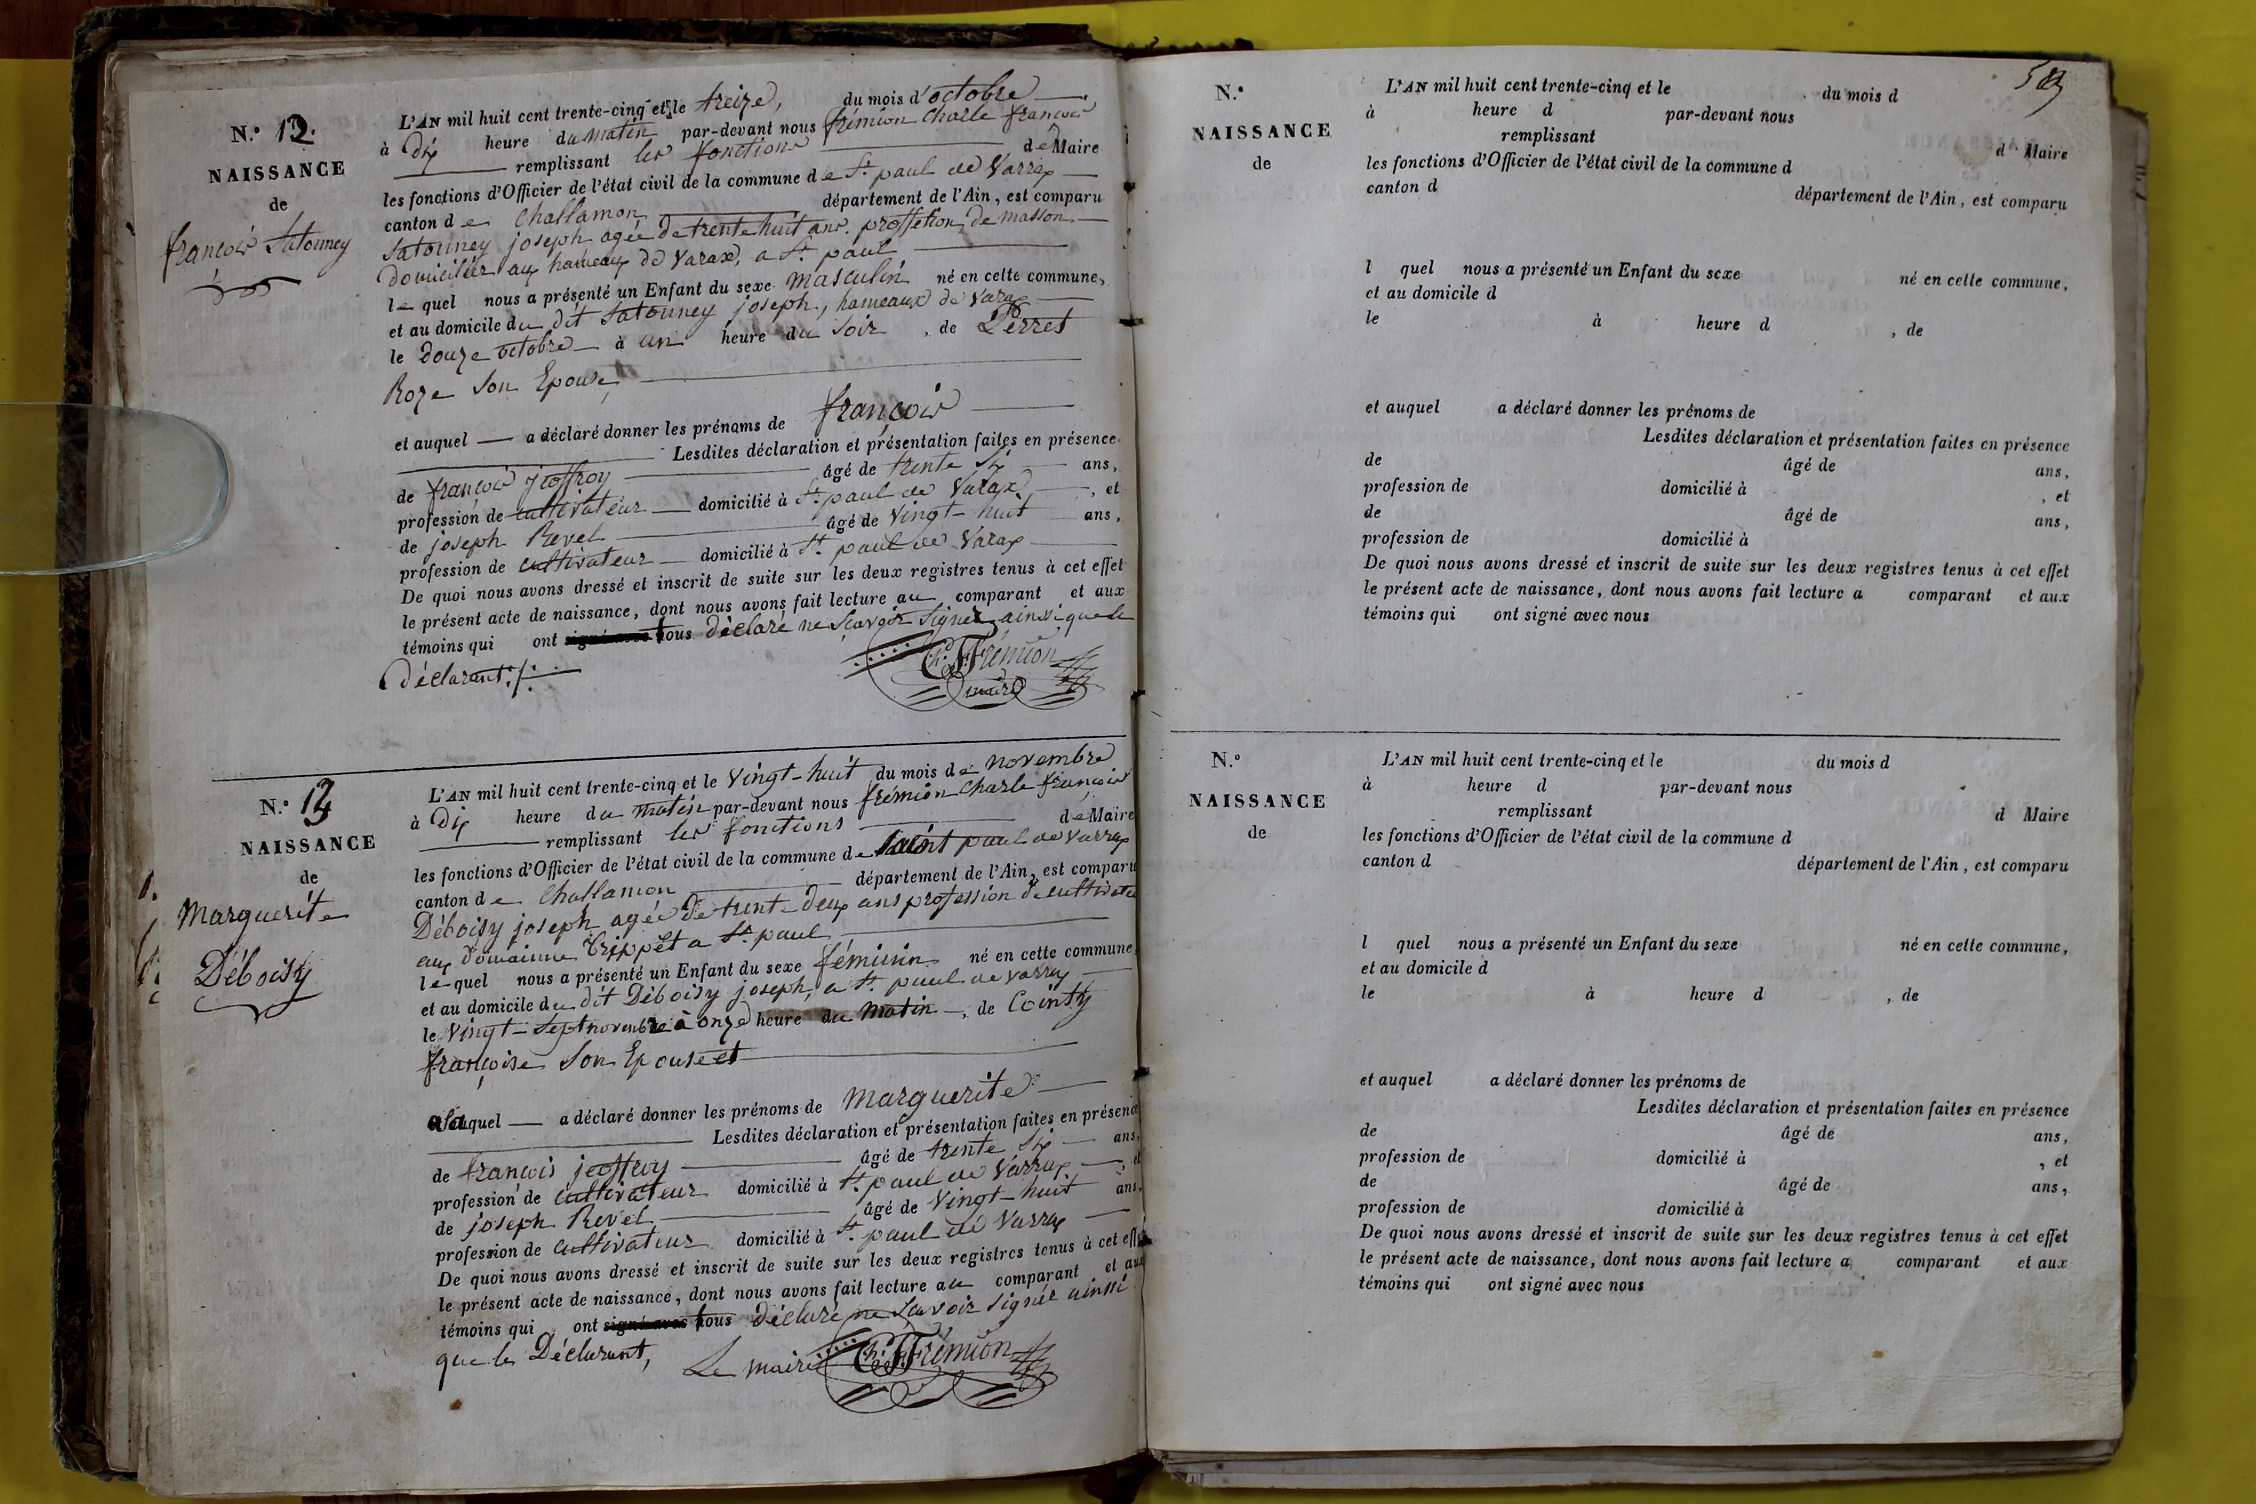 N.º 12.
NAISSANCE
de
françois Satonney
L'AN mil huit cent trente-cinq et le treize, du mois d'octobre
à dix heure du matin par-devant nous frémion Charle françois
remplissant les fonctions de Maire
les fonctions d'Officier de l'état civil de la commune de St. paul de Varrax
canton de Challamon département de l'Ain, est comparu
Satonney joseph agée de trente huit ans. proffetion de masson
domicilier aux hameaux de Varax, a St. paul
le quel nous a présenté un Enfant du sexe masculin né en cette commune,
et au domicile du dit Satonney joseph, hameaux de Varax
le douze octobre à un heure du soir, de Perret
Roze son Epouse,
et auquel a déclaré donner les prénoms de françois
Lesdites déclaration et présentation faites en présence
de françois jeoffroy âgé de trente six ans,
profession de cultivateur domicilié à St. paul de Varax, et
de joseph Revel âgé de vingt-huit ans,
profession de cultivateur domicilié à St. paul de Varax
De quoi nous avons dressé et inscrit de suite sur les deux registres tenus à cet effet
le présent acte de naissance, dont nous avons fait lecture au comparant et aux
témoins qui ont signé avec tous déclaré ne scavoir signer ainssi que le
déclarant./.
Ch. F. Frémion
maire
N.º 13
NAISSANCE
de
Marguerite
Déboisy
L'AN mil huit cent trente-cinq et le vingt-huit du mois de novembre
à dix heure du matin par-devant nous frémion Charle françois
remplissant les fonctions de Maire
les fonctions d'Officier de l'état civil de la commune de saint paul de varrax
canton de Challamon département de l'Ain, est comparu
Déboisy joseph agée de trente deux ans profession de cultivateur
aux domainne Trippet a St. paul
le quel nous a présenté un Enfant du sexe féminin né en cette commune
et au domicile du dit Déboisy joseph, a St. paul de varrax
le vingt-sept novembre à onze heure du matin, de Cointy
françoise son Epouse et
a la quel a déclaré donner les prénoms de marguerite
Lesdites déclaration et présentation faites en présence
de françois jeoffroy âgé de trente six ans,
profession de cultivateur domicilié à St. paul de Varrax, et
de joseph Revel âgé de vingt-huit ans,
profession de cultivateur domicilié à St. paul de Varrax
De quoi nous avons dressé et inscrit de suite sur les deux registres tenus à cet effet
le présent acte de naissance, dont nous avons fait lecture au comparant et aux
témoins qui ont signé avec tous déclaré ne scavoir signér ainssi
que le Déclarant,
Le maire Ch. F. Frémion
N.º
NAISSANCE
de
L'AN mil huit cent trente-cinq et le du mois d
à heure d par-devant nous
remplissant d Maire
les fonctions d'Officier de l'état civil de la commune d
canton d département de l'Ain, est comparu
l quel nous a présenté un Enfant du sexe né en cette commune,
et au domicile d
le à heure d , de
et auquel a déclaré donner les prénoms de
Lesdites déclaration et présentation faites en présence
de âgé de ans,
profession de domicilié à , et
de âgé de ans,
profession de domicilié à
De quoi nous avons dressé et inscrit de suite sur les deux registres tenus à cet effet
le présent acte de naissance, dont nous avons fait lecture a comparant et aux
témoins qui ont signé avec nous
N.º
NAISSANCE
de
L'AN mil huit cent trente-cinq et le du mois d
à heure d par-devant nous
remplissant d Maire
les fonctions d'Officier de l'état civil de la commune d
canton d département de l'Ain, est comparu
l quel nous a présenté un Enfant du sexe né en cette commune,
et au domicile d
le à heure d , de
et auquel a déclaré donner les prénoms de
Lesdites déclaration et présentation faites en présence
de âgé de ans,
profession de domicilié à , et
de âgé de ans,
profession de domicilié à
De quoi nous avons dressé et inscrit de suite sur les deux registres tenus à cet effet
le présent acte de naissance, dont nous avons fait lecture a comparant et aux
témoins qui ont signé avec nous